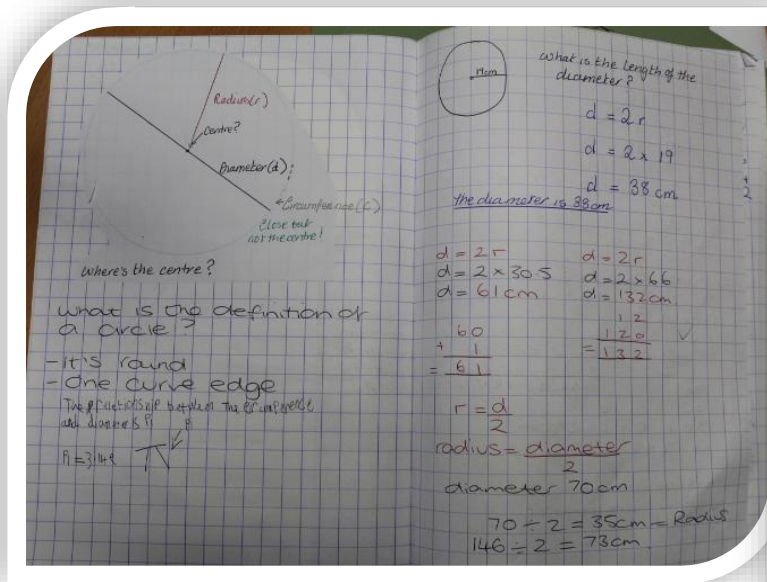 Radius(r)
Centre?
Diameter(d)
Circumference(C)
Close but
not the centre!
Where's the centre?
What is the definition of
a circle?
-it's round
-One curve edge
The between the
and
π
What is the length of the
diameter?
d = 2r
d = 2 x 19
d = 38 cm
the diameter is 38cm
d = 2r
d = 2 x 30.5
d = 61 cm
60
+ 1
= 61
d = 2r
d = 2 x 66
d = 132cm
12
120
= 132
r = d
2
radius = diameter
2
diameter 70cm
70 ÷ 2 = 35cm = Radius
146 ÷ 2 = 73cm